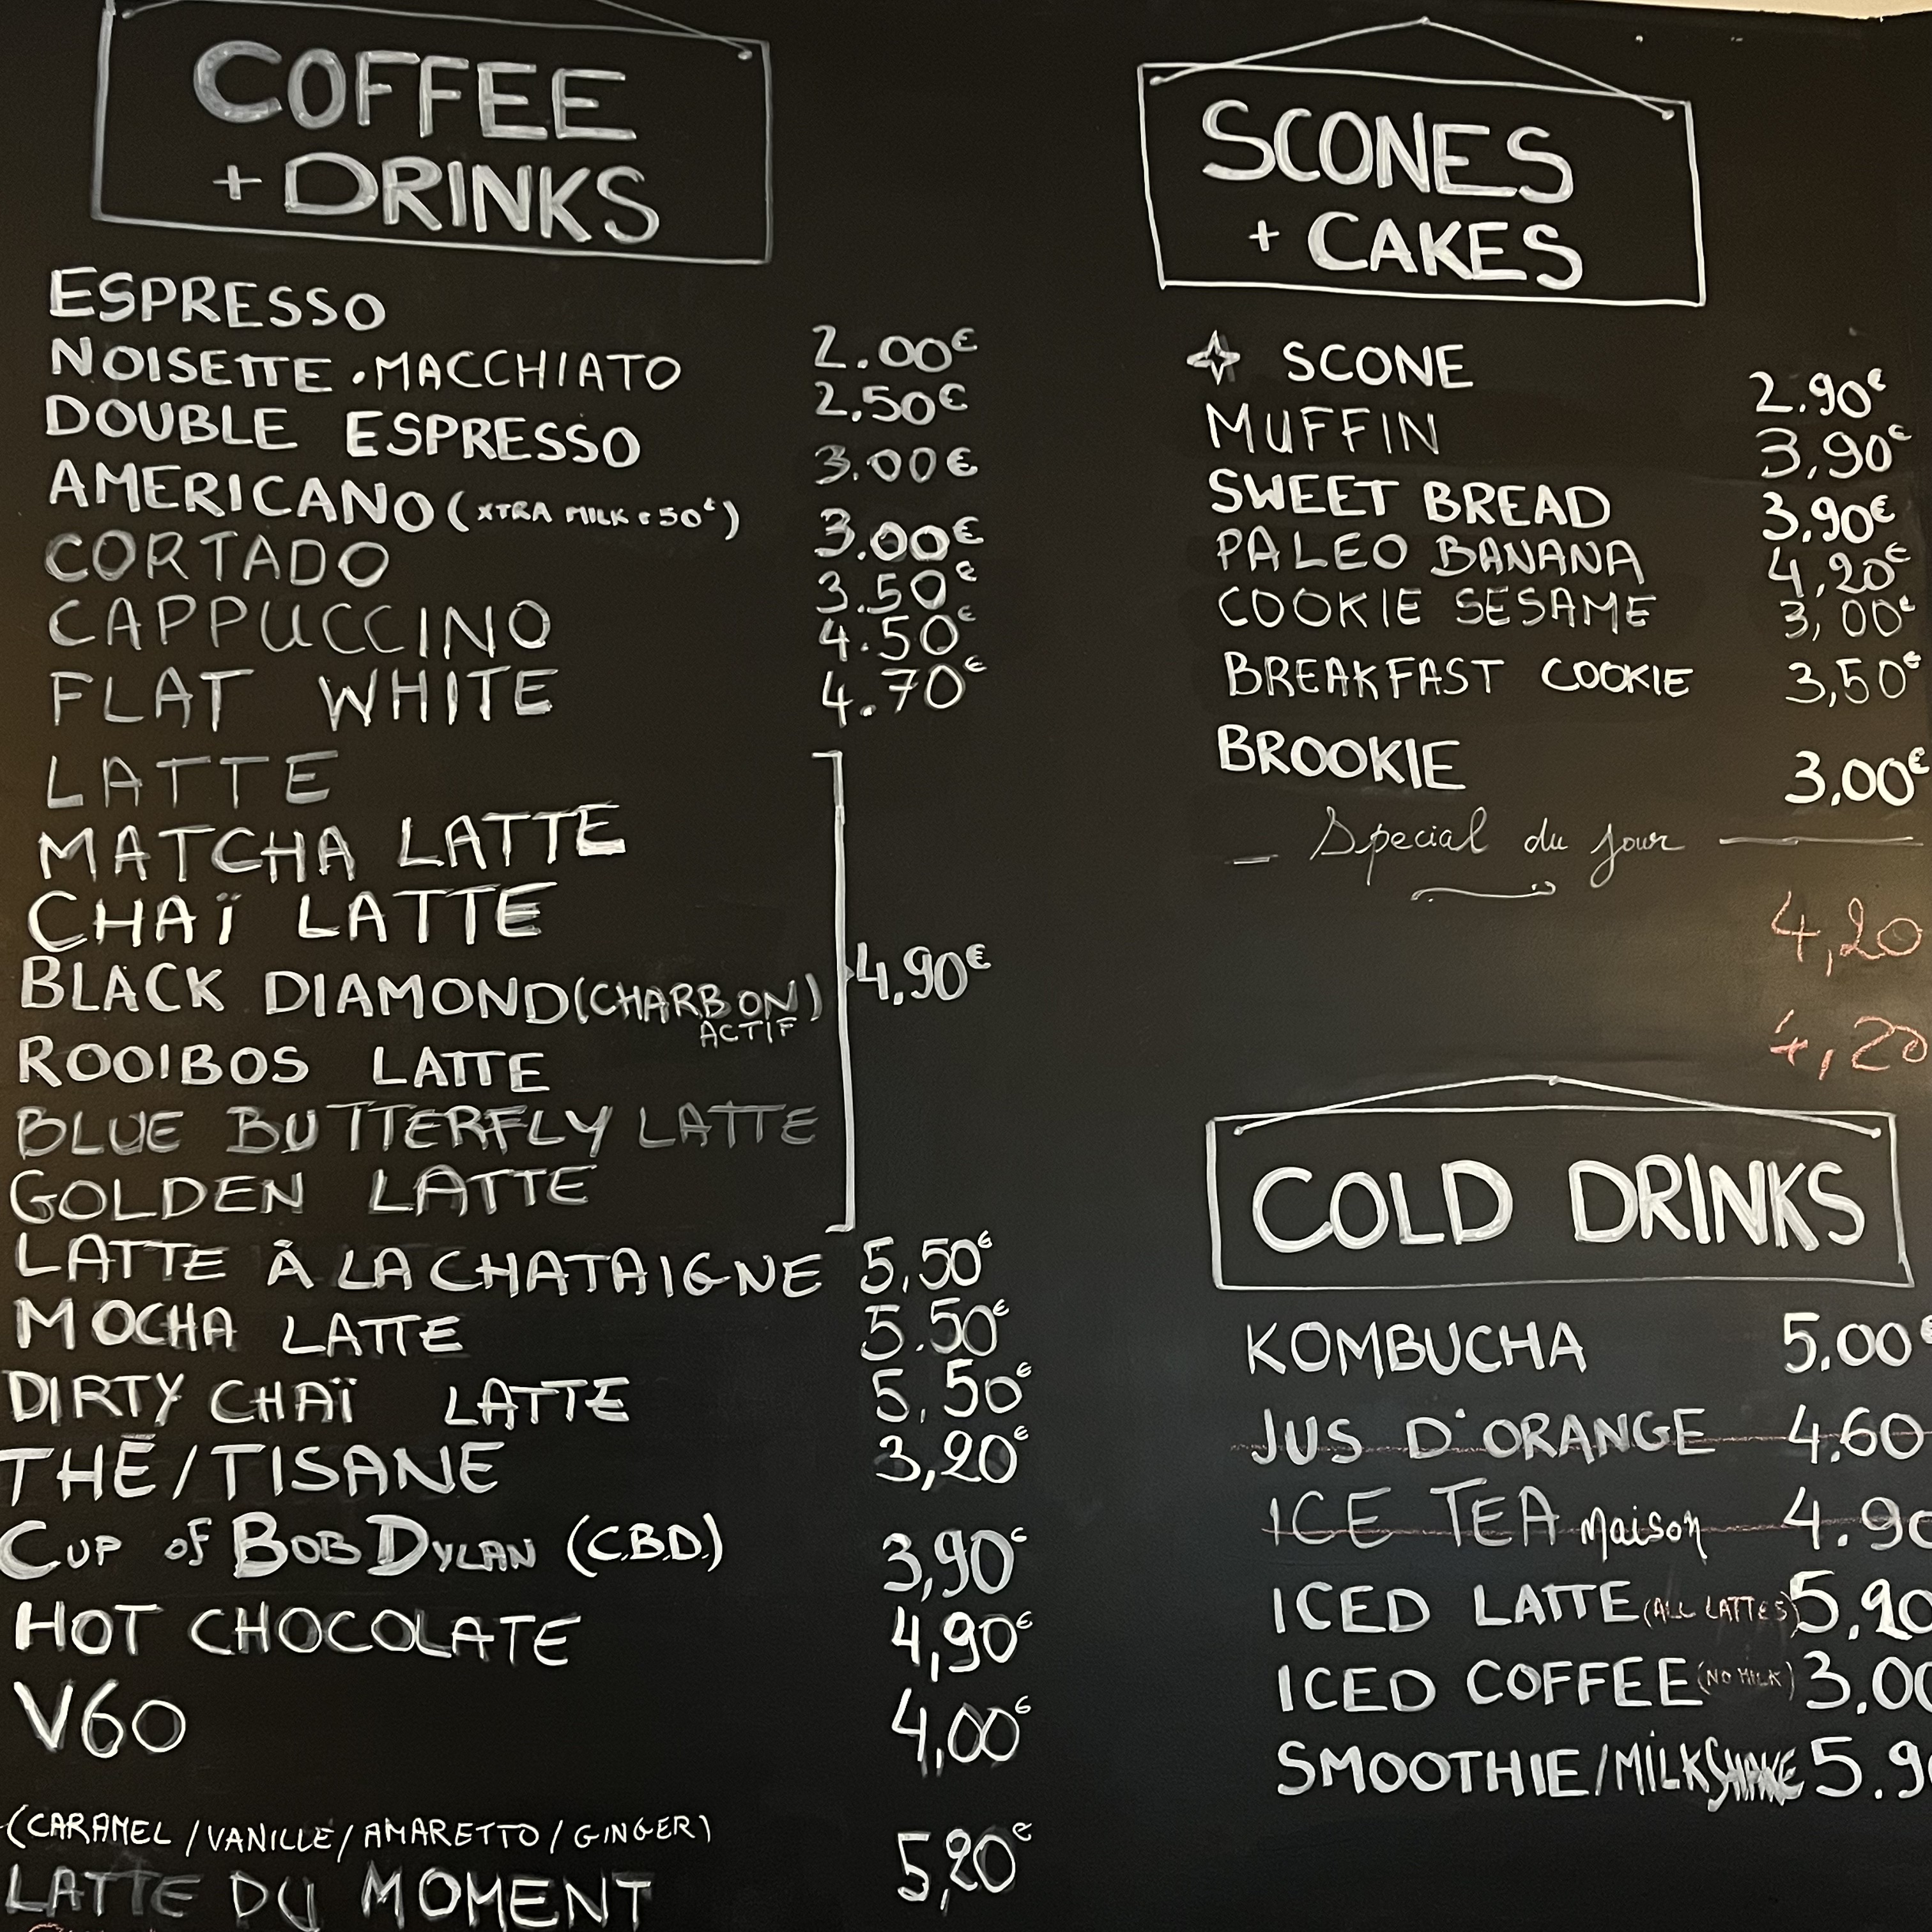 COFFEE
+ DRINKS
ESPRESSO 2.00€
NOISETTE . MACCHIATO 2.50€
DOUBLE ESPRESSO 3.00€
AMERICANO (XTRA MILK 0.50€) 3.00€
CORTADO 3.50€
CAPPUCCINO 4.50€
FLAT WHITE 4.70€
LATTE
MATCHA LATTE
CHAÏ LATTE
4,90€
BLACK DIAMOND (CHARBON
ACTIF)
ROOIBOS LATTE
BLUE BUTTERFLY LATTE
GOLDEN LATTE
LATTE À LA CHATAIGNE 5,50€
MOCHA LATTE 5.50€
DIRTY CHAÏ LATTE 5,50€
THÉ/TISANE 3,20€
CUP of BOB DYLAN (C.B.D.) 3,90€
HOT CHOCOLATE 4,90€
V60 4,00€
(CARAMEL / VANILLE / AMARETTO / GINGER)
LATTE DU MOMENT 5,20€
SCONES
+ CAKES
SCONE 2.90€
MUFFIN 3,90€
SWEET BREAD 3,90€
PALEO BANANA 4,20€
COOKIE SESAME 3,00€
BREAKFAST COOKIE 3,50€
BROOKIE 3,00€
Special du jour
4,20
4,20
COLD DRINKS
KOMBUCHA 5.00€
JUS D'ORANGE 4.60
ICE TEA Maison 4.90
ICED LATTE (ALL LATTES)
ICED COFFEE (NO MILK) 3,00
SMOOTHIE/MILKSHAKE 5.90